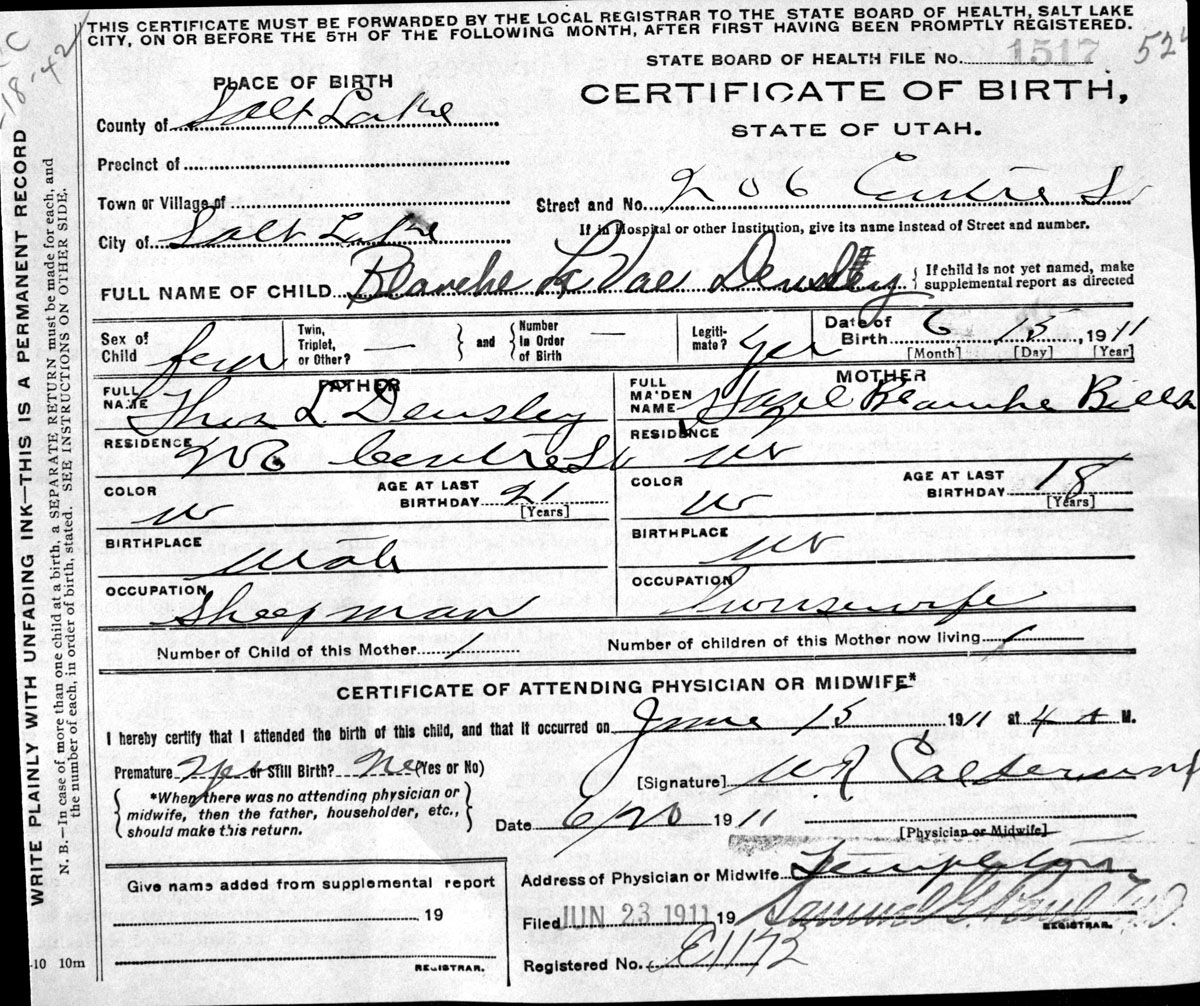 THIS CERTIFICATE MUST BE FORWARDED BY THE LOCAL REGISTRAR TO THE STATE BOARD OF HEALTH, SALT LAKE
CITY, ON OR BEFORE THE 5TH OF THE FOLLOWING MONTH, AFTER FIRST HAVING BEEN PROMPTLY REGISTERED.
STATE BOARD OF HEALTH FILE No. 1517
PLACE OF BIRTH
CERTIFICATE OF BIRTH,
STATE OF UTAH.
County of Salt Lake
Precinct of
Town or Village of
Street and No. 206 Centre St
City of Salt Lake
If in Hospital or other Institution, give its name instead of Street and number.
FULL NAME OF CHILD Blanche La Vae Densley
If child is not yet named, make
supplemental report as directed
Sex of Child fem
Twin, Triplet, or Other? —
and
Number In Order of Birth —
Legiti-mate? yes
Date of Birth 6 15, 1911
[Month] [Day] [Year]
FATHER
MOTHER
FULL NAME Thos L. Densley
FULL MAIDEN NAME Hazel Blanche Bills
RESIDENCE 206 Centre St
RESIDENCE
COLOR W
AGE AT LAST BIRTHDAY 21
[Years]
COLOR W
AGE AT LAST BIRTHDAY 18
[Years]
BIRTHPLACE Utah
BIRTHPLACE
OCCUPATION Sheep man
OCCUPATION housewife
Number of Child of this Mother 1
Number of children of this Mother now living 1
CERTIFICATE OF ATTENDING PHYSICIAN OR MIDWIFE*
I hereby certify that I attended the birth of this child, and that it occurred on June 15, 1911 at 4 A M.
Premature Yes or Still Birth? No (Yes or No)
[Signature] W R Calderwood
*When there was no attending physician or
midwife, then the father, householder, etc.,
should make this return.
Date 6/20 1911
[Physician or Midwife]
Give name added from supplemental report
19
REGISTRAR.
Address of Physician or Midwife Templeton
Filed JUN 23 1911 19
REGISTRAR.
Registered No. C1172
WRITE PLAINLY WITH UNFADING INK—THIS IS A PERMANENT RECORD
N. B.—In case of more than one child at a birth, a SEPARATE RETURN must be made for each, and
the number of each, in order of birth, stated. SEE INSTRUCTIONS ON OTHER SIDE.
-10 10m